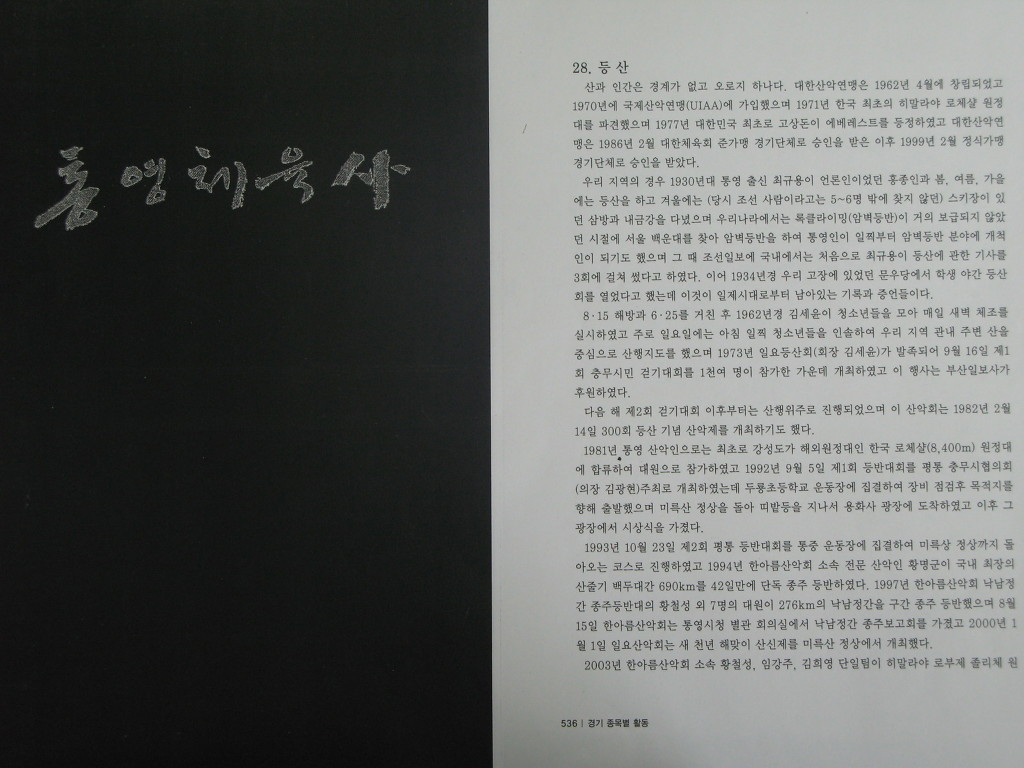 통영체육사
28. 등 산
산과 인간은 경계가 없고 오로지 하나다. 대한산악연맹은 1962년 4월에 창립되었고
1970년에 국제산악연맹(UIAA)에 가입했으며 1971년 한국 최초의 히말라야 로체샬 원정
대를 파견했으며 1977년 대한민국 최초로 고상돈이 에베레스트를 등정하였고 대한산악연
맹은 1986년 2월 대한체육회 준가맹 경기단체로 승인을 받은 이후 1999년 2월 정식가맹
경기단체로 승인을 받았다.
우리 지역의 경우 1930년대 통영 출신 최규용이 언론인이었던 홍종인과 봄, 여름, 가을
에는 등산을 하고 겨울에는 (당시 조선 사람이라고는 5~6명 밖에 찾지 않던) 스키장이 있
던 삼방과 내금강을 다녔으며 우리나라에서는 록클라이밍(암벽등반)이 거의 보급되지 않았
던 시절에 서울 백운대를 찾아 암벽등반을 하여 통영인이 일찍부터 암벽등반 분야에 개척
인이 되기도 했으며 그 때 조선일보에 국내에서는 처음으로 최규용이 등산에 관한 기사를
3회에 걸쳐 썼다고 하였다. 이어 1934년경 우리 고장에 있었던 문우당에서 학생 야간 등산
회를 열었다고 했는데 이것이 일제시대로부터 남아있는 기록과 증언들이다.
8·15 해방과 6·25를 거친 후 1962년경 김세윤이 청소년들을 모아 매일 새벽 체조를
실시하였고 주로 일요일에는 아침 일찍 청소년들을 인솔하여 우리 지역 관내 주변 산을
중심으로 산행지도를 했으며 1973년 일요등산회(회장 김세윤)가 발족되어 9월 16일 제1
회 충무시민 걷기대회를 1천여 명이 참가한 가운데 개최하였고 이 행사는 부산일보사가
후원하였다.
다음 해 제2회 걷기대회 이후부터는 산행위주로 진행되었으며 이 산악회는 1982년 2월
14일 300회 등산 기념 산악제를 개최하기도 했다.
1981년 통영 산악인으로는 최초로 강성도가 해외원정대인 한국 로체샬(8,400m) 원정대
에 합류하여 대원으로 참가하였고 1992년 9월 5일 제1회 등반대회를 평통 충무시협의회
(의장 김광현)주최로 개최하였는데 두룡초등학교 운동장에 집결하여 장비 점검후 목적지를
향해 출발했으며 미륵산 정상을 돌아 띠밭등을 지나서 용화사 광장에 도착하였고 이후 그
광장에서 시상식을 가졌다.
1993년 10월 23일 제2회 평통 등반대회를 통중 운동장에 집결하여 미륵상 정상까지 돌
아오는 코스로 진행하였고 1994년 한아름산악회 소속 전문 산악인 황명군이 국내 최장의
산줄기 백두대간 690km를 42일만에 단독 종주 등반하였다. 1997년 한아름산악회 낙남정
간 종주등반대의 황철성 외 7명의 대원이 276km의 낙남정간을 구간 종주 등반했으며 8월
15일 한아름산악회는 통영시청 별관 회의실에서 낙남정간 종주보고회를 가졌고 2000년 1
월 1일 일요산악회는 새 천년 해맞이 산신제를 미륵산 정상에서 개최했다.
2003년 한아름산악회 소속 황철성, 임강주, 김희영 단일팀이 히말라야 로부제 졸리체 원
536 | 경기 종목별 활동